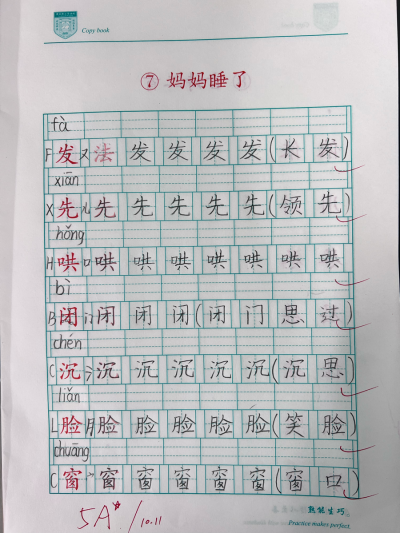 Copy book
⑦ 妈妈睡了
fà
F 发 又 法 发 发 发 发 (长 发)
xiān
X 先 儿 先 先 先 先 先 (领 先)
hǒng
H 哄 口 哄 哄 哄 哄 哄 哄 哄
bì
B 闭 门 闭 闭 闭 (闭 门 思 过)
chén
C 沉 氵 沉 沉 沉 沉 沉 (沉 思)
liǎn
L 脸 月 脸 脸 脸 脸 脸 (笑 脸)
chuāng
C 窗 穴 窗 窗 窗 窗 窗 (窗 口)
5A☆ / 10.11
熟能生巧
Practice makes perfect.